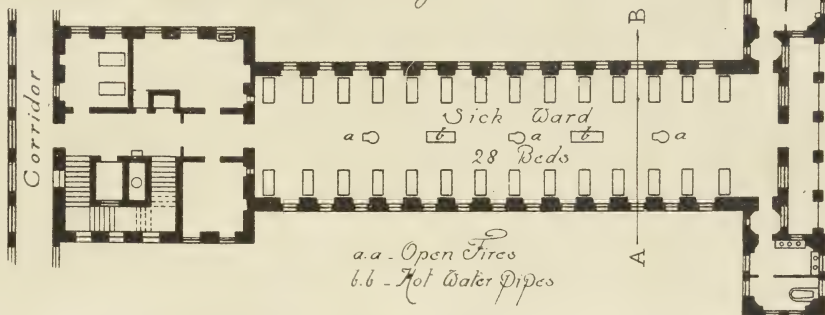 Corridor
B
Sick Ward
a b a b a
28 Beds
A
a.a - Open Fires
b.b - Hot Water Pipes